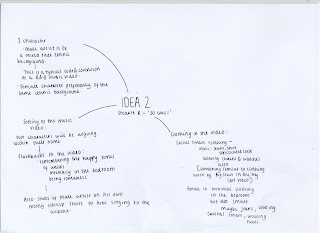 2 characters
- Male artist is of
a mixed race ethnic
background.
This is a typical code & convention
of a R&B music video.
- Female character preferably of the
same ethnic background.
IDEA 2
Setting of the music
video:
two characters will be arguing
within their home
flashbacks in the video:
remembering the happy times
intimacy in the bedroom
being romantic
Also shots of male artist on his own
mostly closeup shots of him singing to the
camera.
Clothing in the video:
casual smart clothing -
male: jeans, shirt
wearing chains & watches
also
(something similar to clothing
female in minimal clothing
in the bedroom
but also smart
maybe jeans, wearing
heels.